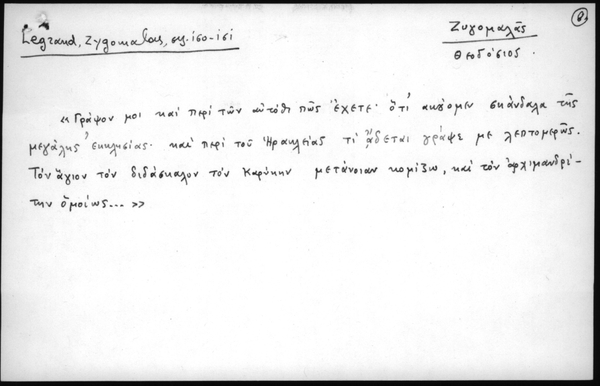 Legrand, Zygomalas, σς. 150-151
Ζυγομαλᾶς
Θεοδόσιος.
«Γράψον μοι καὶ περὶ τῶν αὐτόθι πῶς ἔχετε· ὅτι ἀκούομεν σκάνδαλα τῆς
μεγάλης ἐκκλησίας· καὶ περὶ τοῦ Ἡρακλείας τί ᾄδεται γράψε με λεπτομερῶς.
Τὸν ἅγιον τὸν διδάσκαλον τὸν Καρύκην μετάνοιαν κομίζω, καὶ τὸν ἀρχιμανδρί-
την ὁμοίως... »